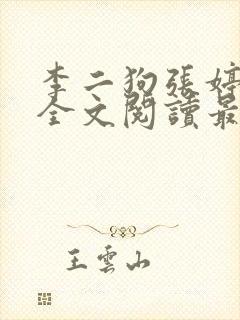 李二狗張婷
全文閱讀最
王雲山